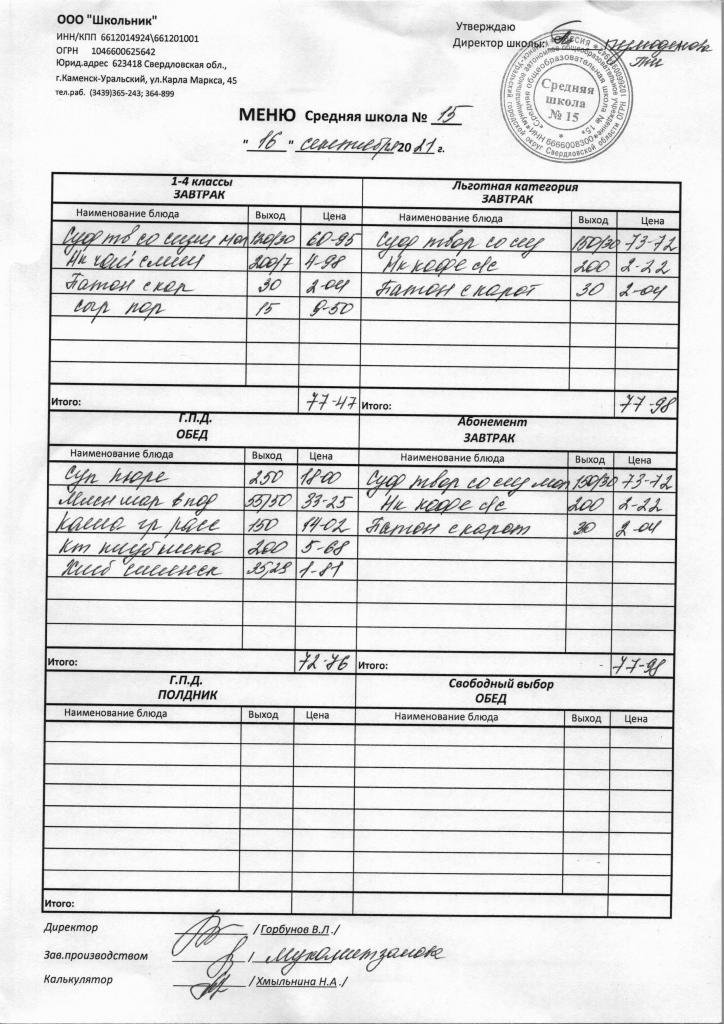 ООО "Школьник"
ИНН/КПП 6612014924\661201001
ОГРН 1046600625642
Юрид.адрес 623418 Свердловская обл.,
г.Каменск-Уральский, ул.Карла Маркса, 45
тел.раб. (3439)365-243; 364-899
Утверждаю
Директор школы:
Средняя
школа
№ 15
МЕНЮ Средняя школа № 15
"16" сентября 2021 г.
1-4 классы
ЗАВТРАК
Льготная категория
ЗАВТРАК
Наименование блюда Выход Цена Наименование блюда Выход Цена
Суф тв со сгущ мол 130/30 60-95 Суф твор со сгущ 150/30 73-72
Нк чай слим 200/7 4-98 Нк кофе с/с 200 2-22
Батон с кар 30 2-04 Батон с карот 30 2-04
Сыр пор 15 9-50
Итого: 77-47 Итого: 77-98
Г.П.Д.
ОБЕД
Абонемент
ЗАВТРАК
Наименование блюда Выход Цена Наименование блюда Выход Цена
Суп пюре 250 18-00 Суф твор со сгущ мол 150/30 73-72
33-25 Нк кофе с/с 200 2-22
Каша гр расс 150 14-02 Батон с карот 30 2-04
Кт клубника 200 5-68
Хлеб 1-81
Итого: 72-76 Итого: 77-98
Г.П.Д.
ПОЛДНИК
Свободный выбор
ОБЕД
Наименование блюда Выход Цена Наименование блюда Выход Цена
Итого:
Директор / Горбунов В.Л ./
Зав.производством /
Калькулятор / Хмыльнина Н.А ./